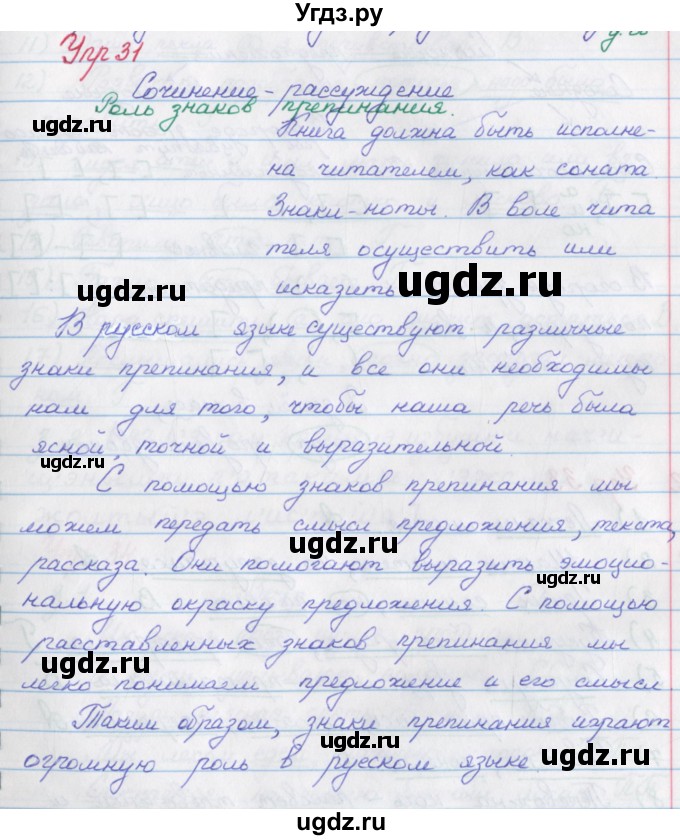 Угдз.ру
Упр 31
Сочинение-рассуждение
Роль знаков препинания.
Книга должна быть исполне-
на читателем, как соната.
Знаки-ноты. В воле чита
теля осуществить или
исказить
В русском языке существуют различные
знаки препинания, и все они необходимы
нам для того, чтобы наша речь была
ясной, точной и выразительной.
С помощью знаков препинания мы
можем передать смысл предложения, текста,
рассказа. Они помогают выразить эмоцио-
нальную окраску предложения. С помощью
расставленных знаков препинания мы
легко понимаем предложение и его смысл.
Таким образом, знаки препинания играют
огромную роль в русском языке.
ugdz.ru
ugdz.ru
ugdz.ru
ugdz.ru
ugdz.ru
ugdz.ru
ugdz.ru
ugdz.ru
ugdz.ru
ugdz.ru
ugdz.ru
Угдз.ру